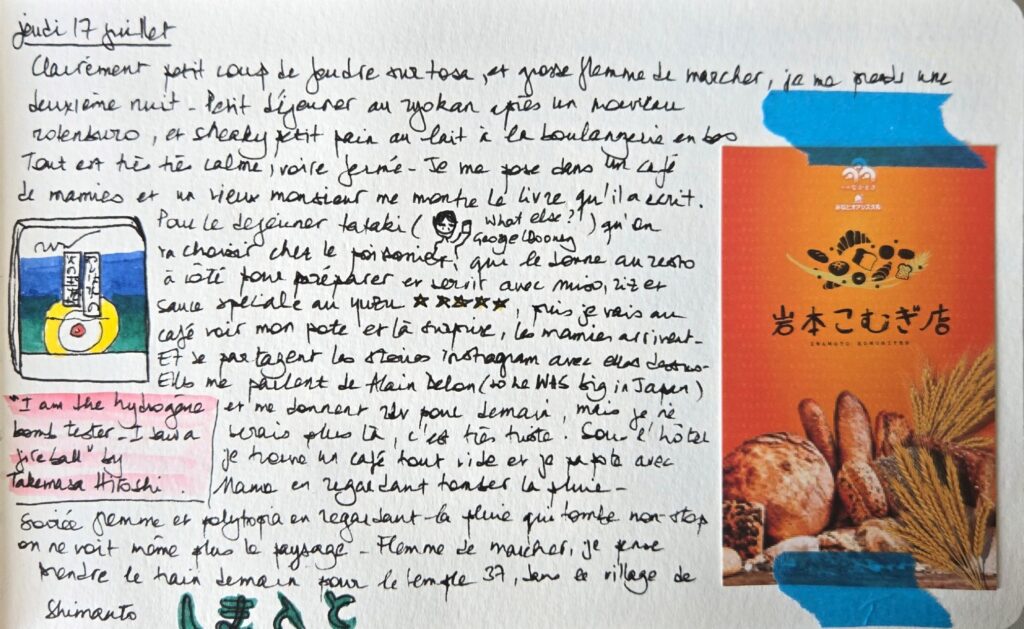 jeudi 17 juillet
Clairement petit coup de foudre sur tosa, et grosse flemme de marcher, je me prends une
deuxième nuit - Petit déjeuner au ryokan après un nouveau
rotenburo, et sneaky petit pain au lait à la boulangerie en bas
Tout est très très calme, voire fermé - Je me pose dans un café
de mamies et un vieux monsieur me montre le livre qu'il a écrit.
Pour le déjeuner tataki ( What else? ) qu'on
George Clooney
va choisir chez le poissonier, qui le donne au resto
à côté pour préparer et servir avec miso, riz et
sauce spéciale au yuzu ★★★★★, puis je vais au
café voir mon pote et là surprise, les mamies arrivent -
Et se partagent les stories instagram avec elles dessus -
Elles me parlent de Alain Delon (so he WAS big in Japan)
et me donnent rdv pour demain, mais je ne
serais plus là, c'est très triste. Sous l'hôtel
je trouve un café tout vide et je papote avec
Mama en regardant tomber la pluie -
"I am the hydrogène
bomb tester - I saw a
fireball" by
Takemasa Hitoshi.
Soirée flemme et polytopia en regardant la pluie qui tombe non-stop
on ne voit même plus le paysage - Flemme de marcher, je pense
prendre le train demain pour le temple 37, dans le village de
Shimanto
しまんと
みなとオアシス
岩本こむぎ店
IWAMOTO KOMUGITEN